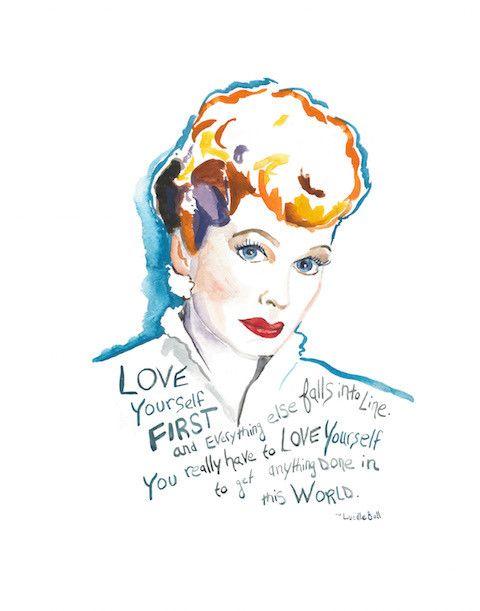 LOVE
Yourself
FIRST
and Everything else falls into Line.
You really have to LOVE Yourself
to get anything DONE in
this WORLD.
~Lucille Ball